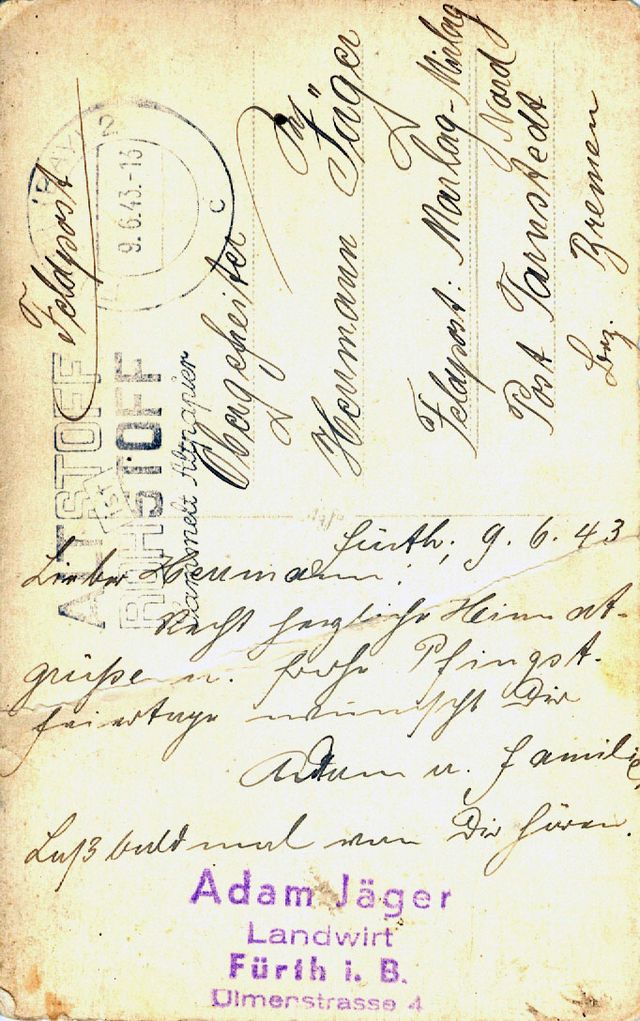 Feldpost
9.6.43.-13
c
ALTSTOFF
ROHSTOFF
Sammelt Altpapier
Obergefreiter
Hermann Jäger
Feldpost: Marlag-Milag
Nord
Post Tarnstedt
Bez. Bremen
Fürth, 9. 6. 43
Lieber Hermann!
Recht herzliche Heimat-
grüße u. frohe Pfingst-
feiertage wünscht Dir
Adam u. Familie.
Laß bald mal von Dir hören.
Adam Jäger
Landwirt
Fürth i. B.
Ulmenstrasse 4